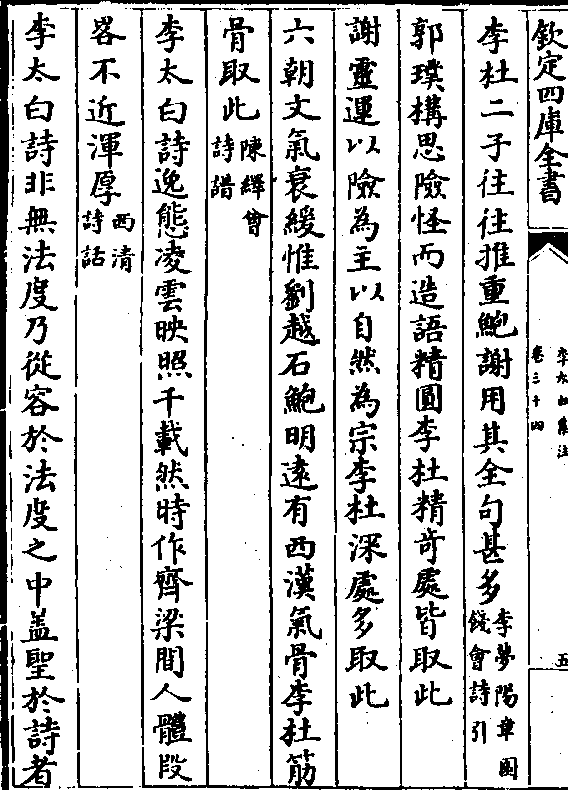 欽定四庫全書
李太白集注
卷三十四
五
李杜二子往往推重鮑謝用其全句甚多李夢陽章園餞會詩引
郭璞構思險怪而造語精圓李杜精奇處皆取此
謝靈運以險為主以自然為宗李杜深處多取此
六朝文氣衰緩惟劉越石鮑明遠有西漢氣骨李杜筋
骨取此陳繹曾詩譜
李太白詩逸態凌雲映照千載然時作齊梁間人體段
畧不近渾厚西清詩話
李太白詩非無法度乃從容於法度之中盖聖於詩者